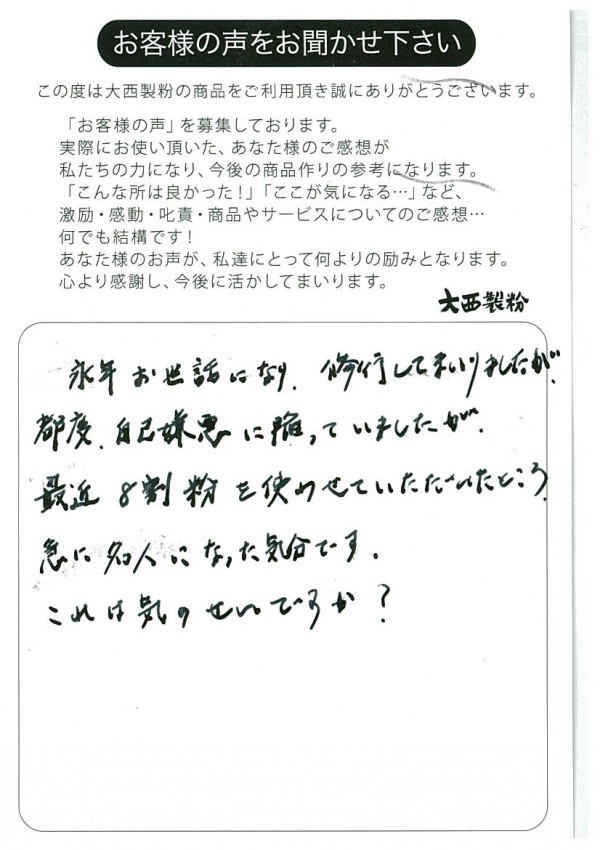 お客様の声をお聞かせ下さい
この度は大西製粉の商品をご利用頂き誠にありがとうございます。
「お客様の声」を募集しております。
実際にお使い頂いた、あなた様のご感想が
私たちの力になり、今後の商品作りの参考になります。
「こんな所は良かった！」「ここが気になる…」など、
激励・感動・叱責・商品やサービスについてのご感想…
何でも結構です！
あなた様のお声が、私達にとって何よりの励みとなります。
心より感謝し、今後に活かしてまいります。
大西製粉
永年お世話になり、修行してまいりましたが、
都度、自己嫌悪に陥っていましたが、
最近8割粉を使わせていただいたところ
急に名人になった気分です。
これは気のせいですか？